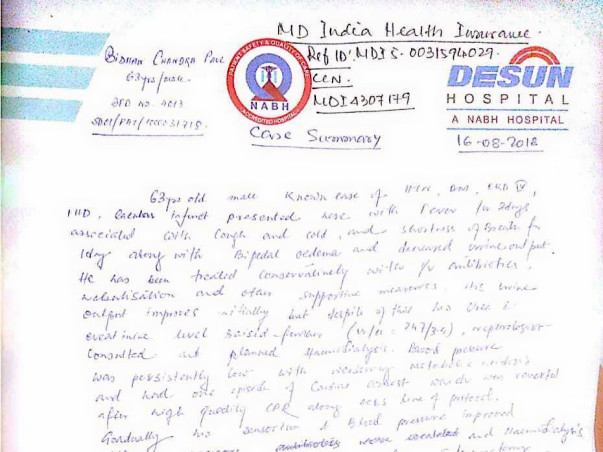 MD India Health Insurance
Bidhan Chandra
63yrs/male
Ref ID: MDI5-0031594029
CCN.
MDI4307179
PATIENT SAFETY & QUALITY OF CARE
NABH
ACCREDITED HOSPITAL
DESUN
HOSPITAL
A NABH HOSPITAL
16-08-2018
Case Summary
63yrs old male known case of HTN, DM, CKD IV,
IHD, infarct presented here with fever for 2days
associated with cough and cold, and shortness of breath for
1day along with Bipedal oedema and decreased urine output
He has been treated conservatively with I/V antibiotics,
nebulisation and other supportive measures. His urine
output improves initially but despite of this his Urea &
creatinine level raised further nephrologist
consulted and planned Haemodialysis. Blood pressure
was persistently low with worsening metabolic acidosis
and had one episode of Cardiac arrest which was revived
after high quality CPR along ACLS line of protocol.
Gradually his sensorium & Blood pressure improved
antibiotics were escalated and Haemodialysis